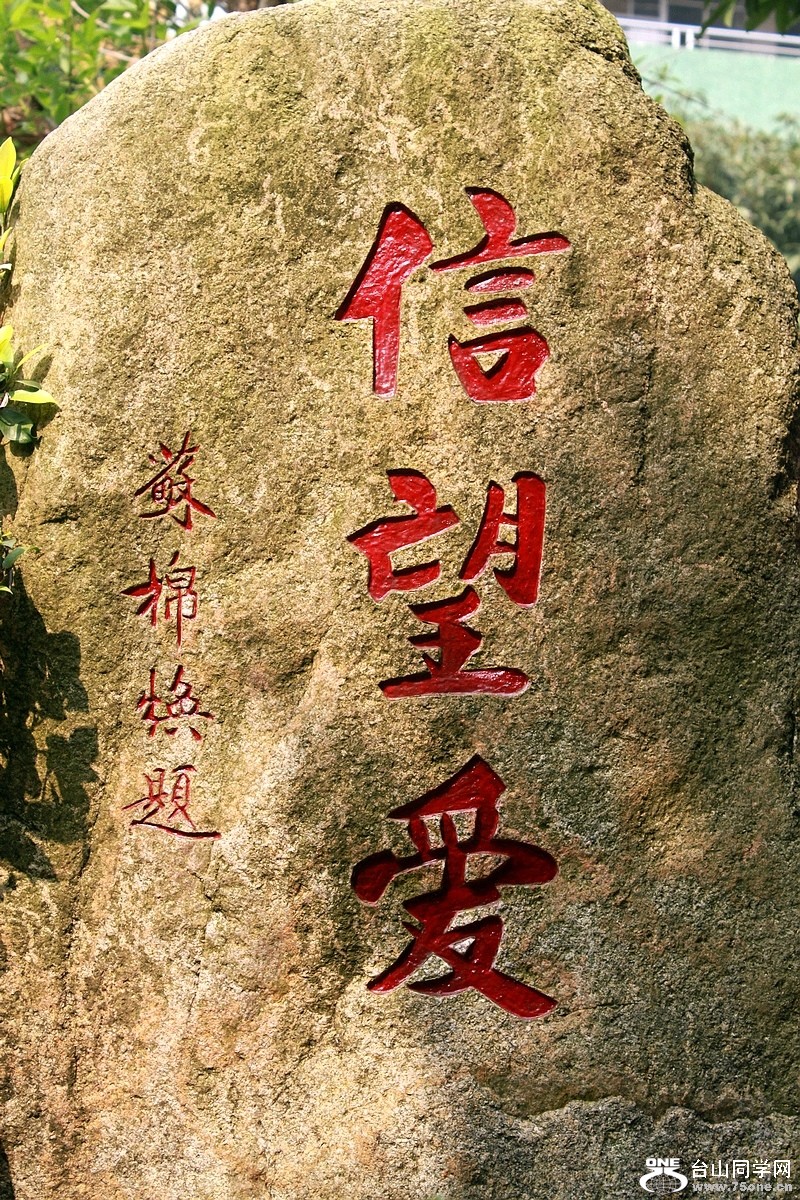 信望愛
蘇棉煥題
ONE 台山同学网
www.75one.cn